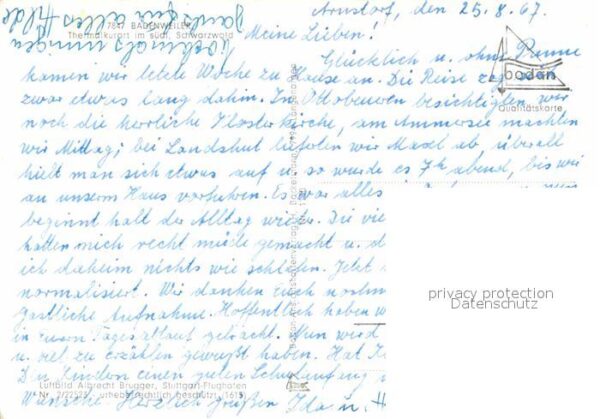 Arnstorf, den 25.8.67.
Meine Lieben!
Glücklich u. ohne Panne
kamen wir letzte Woche zu Hause an. Die Reise zog sich
zwar etwas lang dahin. In Ottobeuren besichtigten wir
noch die herrliche Klosterkirche, am Ammersee machten
wir Mittag; bei Landshut lieferten wir ab, überall
hielt man sich etwas auf u. so wurde es 7h abend, bis wir
an unserm Haus vorfuhren. Es war alles
beginnt halt der Alltag wieder. Die vie
hatten mich recht müde gemacht u. d
ich daheim nichts wie schlafen. Jetzt
normalisiert. Wir danken Euch nochm
Gastliche Aufnahme. Hoffentlich haben w
in euern Tagesablauf gebracht. Nun wird
u. viel zu erzählen gewußt haben. Hat
Den Kindern einen guten Schulanfang
Wünsche Herzlich grüßen Ida u. H
Nochmals innigen
Dank für alles Hilde
7847 BADENWEILER
Thermalkurort im südl. Schwarzwald
bodan
Qualitätskarte
privacy protection
Datenschutz
Luftbild Albrecht Brugger, Stuttgart-Flughafen
urheberrechtlich geschützt (1615)